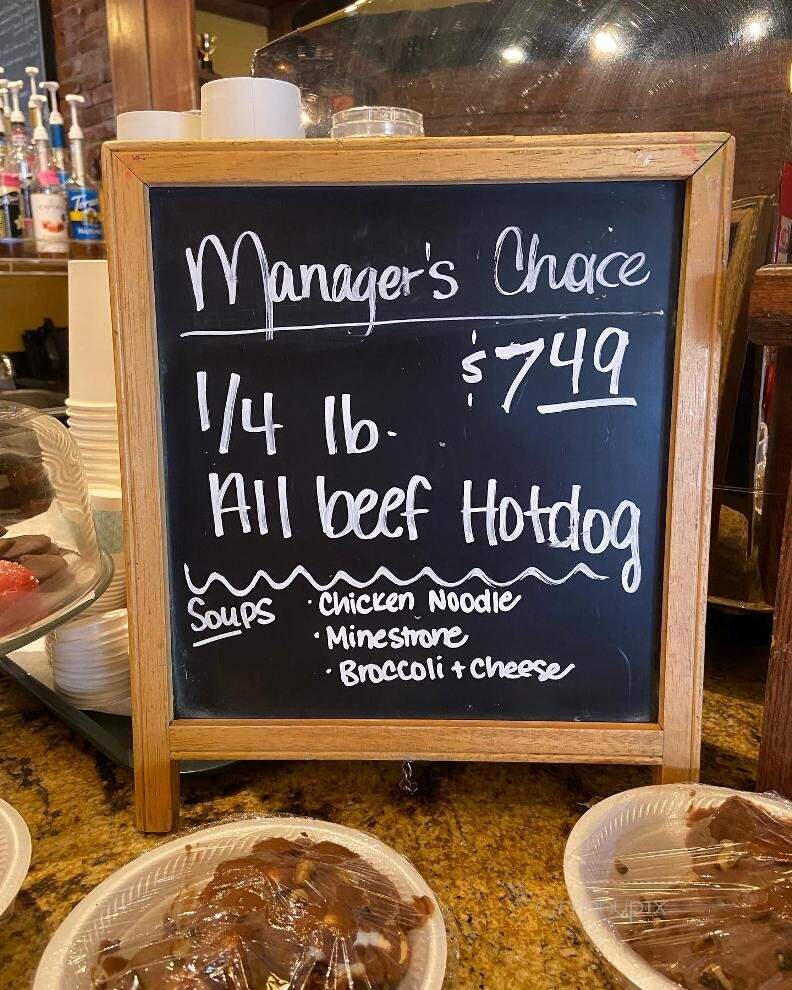 Manager's Choice
$7.49
1/4 lb.
All beef Hotdog
Soups · Chicken Noodle
· Minestrone
· Broccoli + Cheese